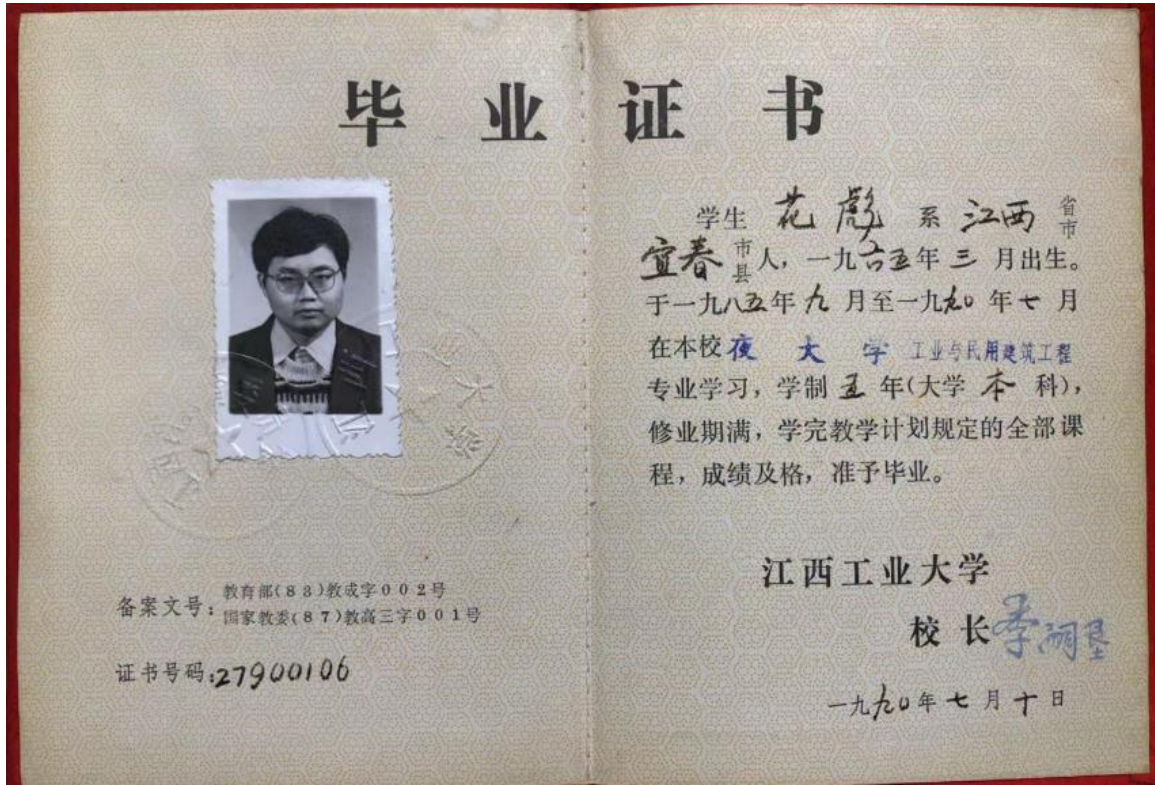 毕业证书
学生 花彪 系 江西 省市
宜春 市县 人，一九六五年 三 月出生。
于一九八五年 九 月至一九九0 年 七 月
在本校 夜 大 学 工业与民用建筑工程
专业学习，学制 五 年(大学 本 科)，
修业期满，学完教学计划规定的全部课
程，成绩及格，准予毕业。
江西工业大学
校 长 李嗣垦
一九九0年 七 月 十 日
备案文号：教育部(83)教成字002号
国家教委(87)教高三字001号
证书号码:27900106